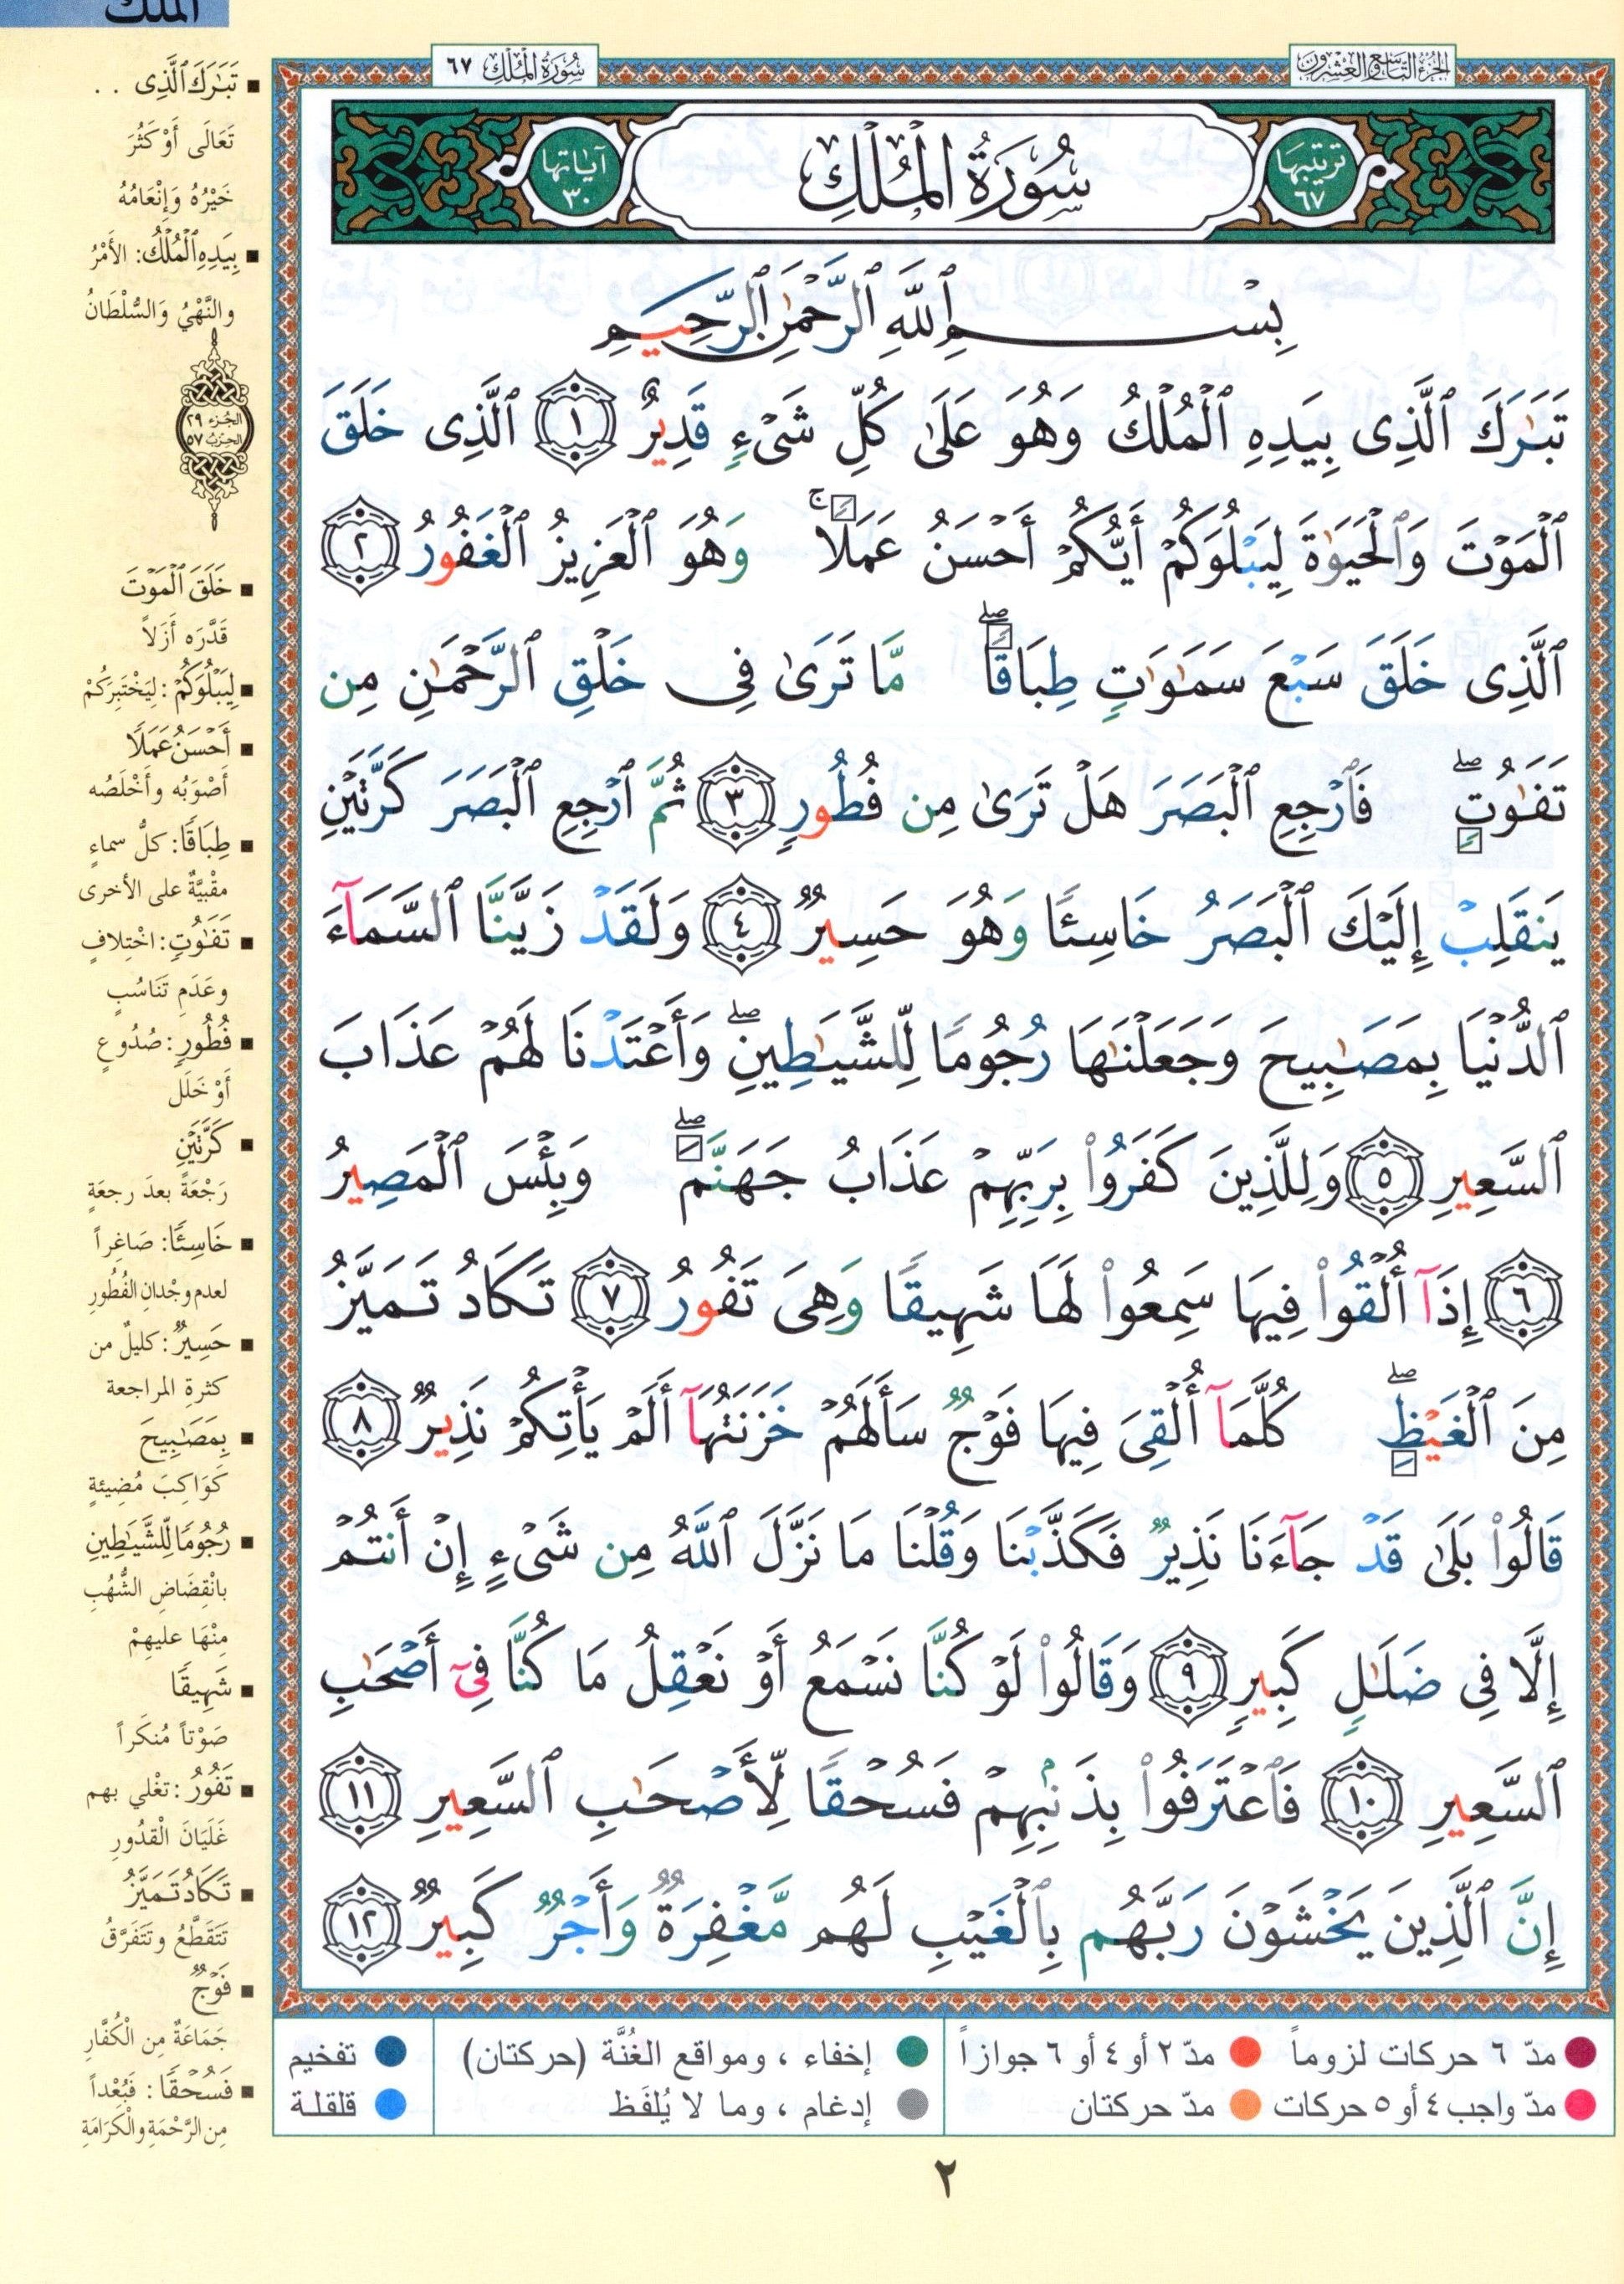 الملك
الجزء التاسع والعشرون
سورة الملك ٦٧
ترتيبها ٦٧
سُورَةُ المُلْكِ
آياتها ٣٠
بِسْمِ ٱللَّهِ ٱلرَّحْمَٰنِ ٱلرَّحِيمِ
تَبَٰرَكَ ٱلَّذِى بِيَدِهِ ٱلْمُلْكُ وَهُوَ عَلَىٰ كُلِّ شَىْءٍ قَدِيرٌ ١ ٱلَّذِى خَلَقَ
ٱلْمَوْتَ وَٱلْحَيَوٰةَ لِيَبْلُوَكُمْ أَيُّكُمْ أَحْسَنُ عَمَلًا ۚ وَهُوَ ٱلْعَزِيزُ ٱلْغَفُورُ ٢
ٱلَّذِى خَلَقَ سَبْعَ سَمَٰوَٰتٍ طِبَاقًا ۖ مَّا تَرَىٰ فِى خَلْقِ ٱلرَّحْمَٰنِ مِن
تَفَٰوُتٍ ۖ فَٱرْجِعِ ٱلْبَصَرَ هَلْ تَرَىٰ مِن فُطُورٍ ٣ ثُمَّ ٱرْجِعِ ٱلْبَصَرَ كَرَّتَيْنِ
يَنقَلِبْ إِلَيْكَ ٱلْبَصَرُ خَاسِئًا وَهُوَ حَسِيرٌ ٤ وَلَقَدْ زَيَّنَّا ٱلسَّمَآءَ
ٱلدُّنْيَا بِمَصَٰبِيحَ وَجَعَلْنَٰهَا رُجُومًا لِّلشَّيَٰطِينِ ۖ وَأَعْتَدْنَا لَهُمْ عَذَابَ
ٱلسَّعِيرِ ٥ وَلِلَّذِينَ كَفَرُوا۟ بِرَبِّهِمْ عَذَابُ جَهَنَّمَ ۖ وَبِئْسَ ٱلْمَصِيرُ
٦ إِذَآ أُلْقُوا۟ فِيهَا سَمِعُوا۟ لَهَا شَهِيقًا وَهِىَ تَفُورُ ٧ تَكَادُ تَمَيَّزُ
مِنَ ٱلْغَيْظِ ۖ كُلَّمَآ أُلْقِىَ فِيهَا فَوْجٌ سَأَلَهُمْ خَزَنَتُهَآ أَلَمْ يَأْتِكُمْ نَذِيرٌ ٨
قَالُوا۟ بَلَىٰ قَدْ جَآءَنَا نَذِيرٌ فَكَذَّبْنَا وَقُلْنَا مَا نَزَّلَ ٱللَّهُ مِن شَىْءٍ إِنْ أَنتُمْ
إِلَّا فِى ضَلَٰلٍ كَبِيرٍ ٩ وَقَالُوا۟ لَوْ كُنَّا نَسْمَعُ أَوْ نَعْقِلُ مَا كُنَّا فِىٓ أَصْحَٰبِ
ٱلسَّعِيرِ ١٠ فَٱعْتَرَفُوا۟ بِذَنۢبِهِمْ فَسُحْقًا لِّأَصْحَٰبِ ٱلسَّعِيرِ ١١
إِنَّ ٱلَّذِينَ يَخْشَوْنَ رَبَّهُم بِٱلْغَيْبِ لَهُم مَّغْفِرَةٌ وَأَجْرٌ كَبِيرٌ ١٢
▪ تَبَٰرَكَ ٱلَّذِى . .
تَعَالَى أَوْ كَثُرَ
خَيْرُهُ وَإِنْعَامُهُ
▪ بِيَدِهِ ٱلْمُلْكُ: الأَمْرُ
والنَّهْيُ وَالسُّلْطَانُ
الجزء ٢٩
الحزب ٥٧
▪ خَلَقَ ٱلْمَوْتَ
قَدَّرَه أَزَلاً
▪ لِيَبْلُوَكُمْ: لِيَخْتَبِرَكُمْ
▪ أَحْسَنُ عَمَلًا
أَصْوَبُه وأَخْلَصُه
▪ طِبَاقًا: كلُّ سماءٍ
مقْبيَّةٌ على الأخرى
▪ تَفَٰوُتٍ: اخْتِلافٍ
وعَدَمِ تَنَاسُبٍ
▪ فُطُورٍ: صُدُوعٍ
أَوْ خَلَل
▪ كَرَّتَيْنِ
رَجْعَةً بعدَ رجعَةٍ
▪ خَاسِئًا: صَاغِراً
لعدم وجْدانِ الفُطُورِ
▪ حَسِيرٌ: كليلٌ من
كثرةِ المراجعة
▪ بِمَصَٰبِيحَ
كَوَاكِبَ مُضِيئةٍ
▪ رُجُومًا لِّلشَّيَٰطِينِ
بانْقِضَاضِ الشُّهُبِ
مِنْهَا عليهِمْ
▪ شَهِيقًا
صَوْتاً مُنكَراً
▪ تَفُورُ: تغْلي بهم
غَلَيَانَ الْقدُورِ
▪ تَكَادُ تَمَيَّزُ
تَتَقَطَّعُ وتَتَفَرَّقُ
▪ فَوْجٌ
جَمَاعَةٌ مِن الْكُفَّارِ
▪ فَسُحْقًا: فَبُعْداً
مِن الرَّحْمَةِ والْكَرَامَةِ
مدّ ٦ حركات لزوماً ● مدّ ٢ أو ٤ أو ٦ جوازاً ● إخفاء ، ومواقع الغُنَّة (حركتان) ● تفخيم
مدّ واجب ٤ أو ٥ حركات ● مدّ حركتان ● إدغام ، وما لا يُلفَظ ● قلقلة
٢